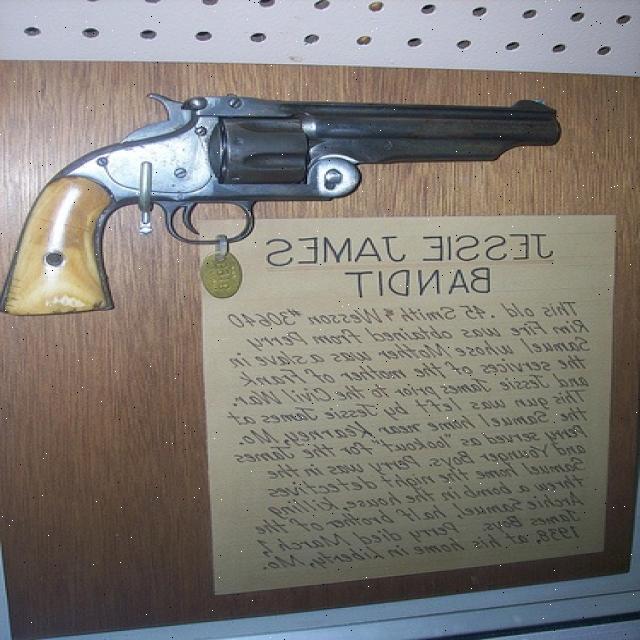 JESSIE JAMES
BANDIT
This old .45 Smith & Wesson #30640
Rim Fire was obtained from Perry
Samuel whose Mother was a slave in
the services of the mother of Frank
and Jessie James prior to the Civil War.
This gun was left by Jessie James at
the Samuel home near Kearney, Mo.
Perry served as "lookout" for the James
and Younger Boys. Perry was in the
Samuel home the night detectives
threw a bomb in the house, killing
Archie Samuel half brother of the
James Boys. Perry died March 1,
1938, at his home in Liberty, Mo.